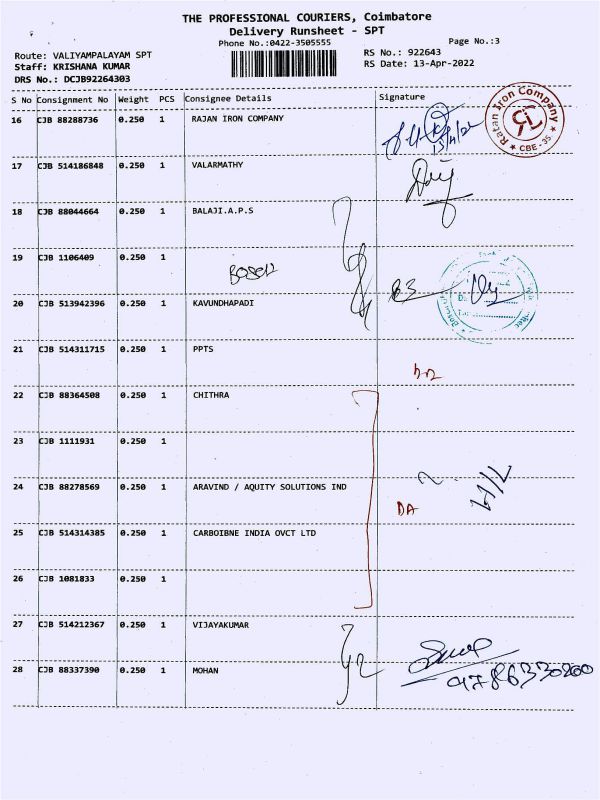 THE PROFESSIONAL COURIERS, Coimbatore
Delivery Runsheet - SPT
Phone No.:0422-3505555
Page No.:3
Route: VALIYAMPALAYAM SPT
RS No.: 922643
Staff: KRISHANA KUMAR
RS Date: 13-Apr-2022
DRS No.: DCJB92264303
S No Consignment No Weight PCS Consignee Details Signature
16 CJB 88288736 0.250 1 RAJAN IRON COMPANY
13/4/22
Ratan Iron Company
★ CBE - 35 ★
17 CJB 514186848 0.250 1 VALARMATHY
18 CJB 88044664 0.250 1 BALAJI.A.P.S
19 CJB 1106409 0.250 1
20 CJB 513942396 0.250 1 KAVUNDHAPADI
21 CJB 514311715 0.250 1 PPTS
22 CJB 88364508 0.250 1 CHITHRA
23 CJB 1111931 0.250 1
24 CJB 88278569 0.250 1 ARAVIND / AQUITY SOLUTIONS IND
DA
25 CJB 514314385 0.250 1 CARBOIBNE INDIA OVCT LTD
26 CJB 1081833 0.250 1
27 CJB 514212367 0.250 1 VIJAYAKUMAR
28 CJB 88337390 0.250 1 MOHAN